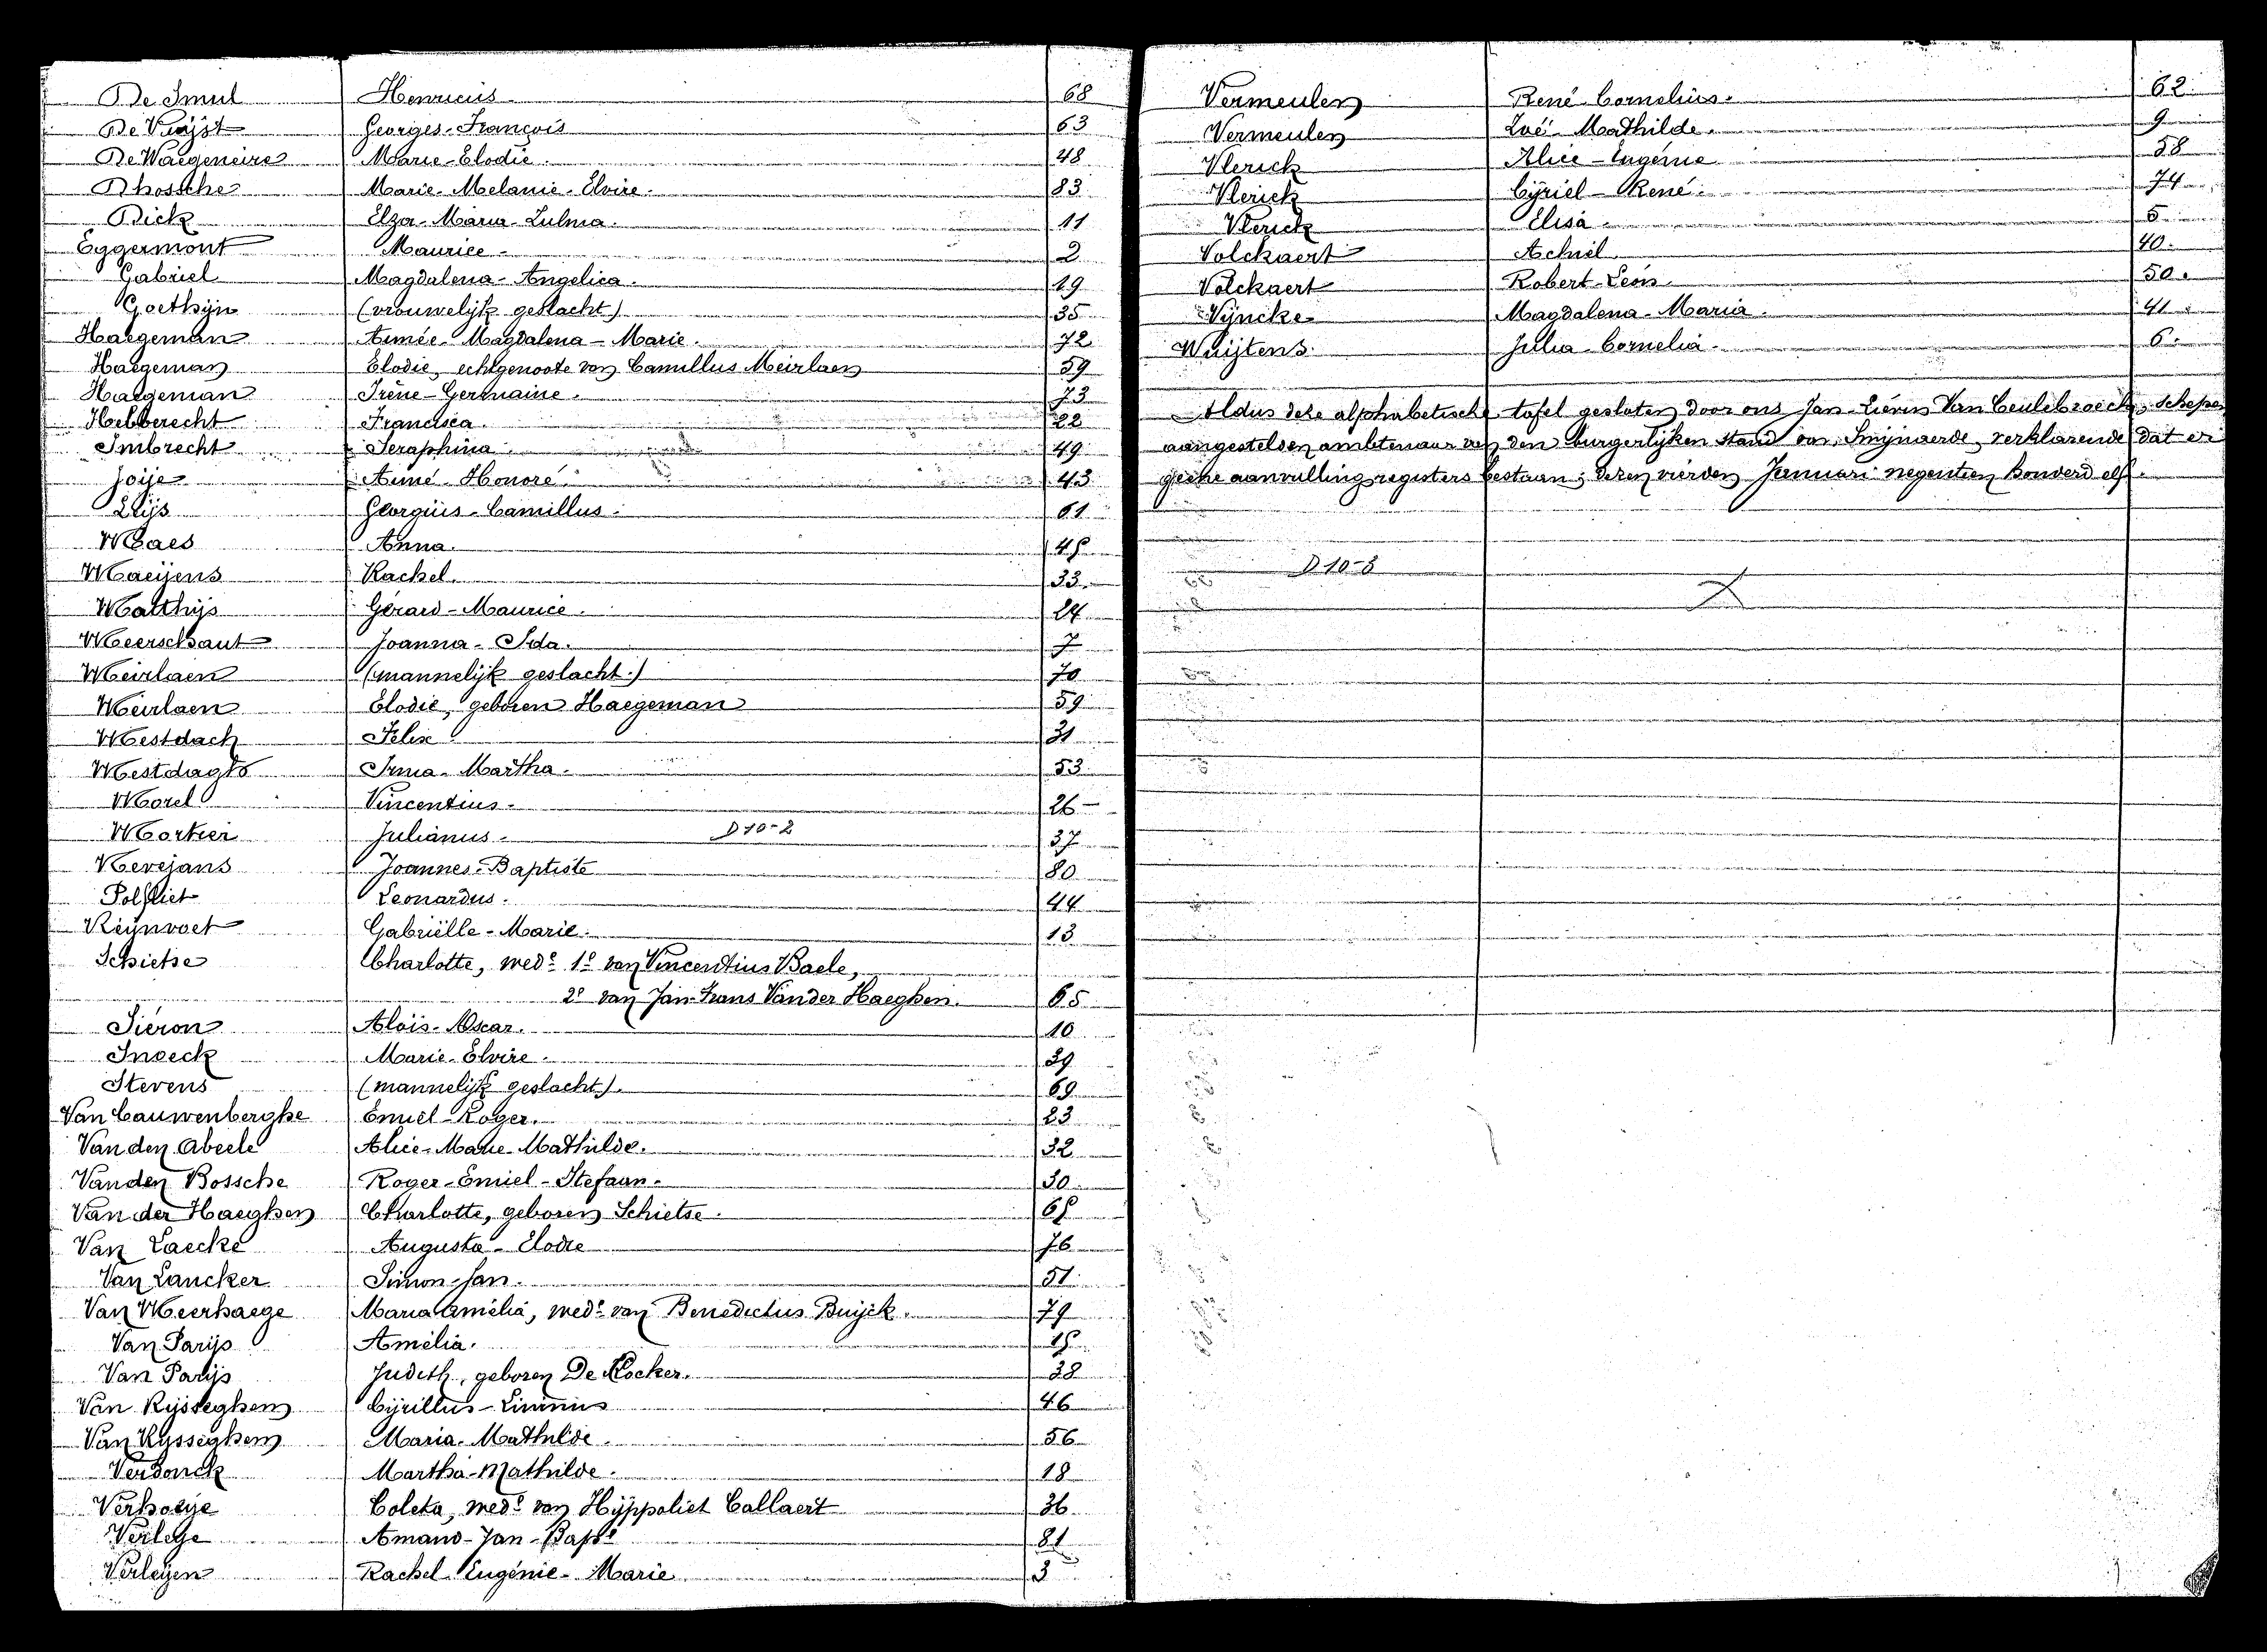 De Smul Henricus 68
De Vuijst Georges-François 63
De Waegeneire Marie-Elodie. 48
Dhossche Marie-Melanie-Elvire. 83
Dick Elza-Maria-Zulma. 11
Eggermont Maurice 2
Gabriel Magdalena-Angelica. 19
Goethijn (vrouwelijk geslacht) 35
Haegeman Aimée-Magdalena-Marie. 72
Haegeman Elodie, echtgenoote van Camillus Meirlaen 59
Haegeman Irène-Germaine. 73
Helberecht Francisca. 22
Imbrecht Seraphina. 49
Joije Aimé-Honoré. 43
Leijs Georgius-Camillus. 61
Maes Anna. 45
Maeijens Rachel. 33.
Matthijs Gérard-Maurice. 24
Meerschaut Joanna-Ida. 7
Meirlaen (mannelijk geslacht.) 70
Meirlaen Elodie, geboren Haegeman 59
Mestdach Felix 31
Mestdagh Irma-Martha. 53
Morel Vincentius. 26
Mortier Julianus. D 10-2 37
Nevejans Joannes-Baptiste 80
Polfliet Leonardus. 44
Reijnvoet Gabriëlle-Marie. 13
Schietse Charlotte, wede 1o van Vincentius Baele,
2o van Jan-Frans Vander Haeghen. 65
Sieron Aloïs-Oscar. 10
Snoeck Marie-Elvire. 39
Stevens (mannelijk geslacht). 69
Van Cauwenberghe Emiel-Roger. 23
Van den Abeele Alice-Marie-Mathilde. 32
Van den Bossche Roger-Emiel-Stefaan. 30
Van der Haeghen Charlotte, geboren Schietse. 65
Van Laecke Augusta-Elodie 76
Van Lancker Simon-Jan. 51
Van Meerhaege Maria Amélia, wede van Benedictus Buijck. 79
Van Parijs Amélia. 15
Van Parijs Judith, geboren De Kocker. 38
Van Rijsseghem Cijrillus-Livinus 46
Van Rijsseghem Maria-Mathilde. 56
Verdonck Martha-Mathilde. 18
Verhoeije Coleta, wede van Hijppoliet Callaert 36
Verleije Amand-Jan-Bapte 81
Verleijen Rachel-Eugénie-Marie 3
Vermeulen René-Cornelius. 62
Vermeulen Zoé-Mathilde. 9
Vlerick Alice-Eugénie 58
Vlerick Cijriel-René. 74
Vlerick Elisa. 5
Volckaert Achiel. 40.
Volckaert Robert-Leon. 50.
Vijncke Magdalena-Maria. 41
Wuijtens Julia-Cornelia. 6.
Aldus deze alphabetische tafel gesloten door ons Jan-Lievin Van Ceulebroeck, schepen
aangestelden ambtenaar van den burgerlijken stand van Swijnaerde, verklarende dat er
geene aanvullingregisters bestaan; dezen vierden Januari negentien honderd elf.
D 10-8